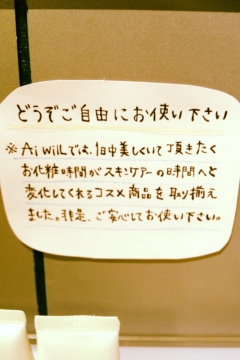 どうぞご自由にお使い下さい
※Ai willでは、1日中美しくいて頂きたく
お化粧時間がスキンケアーの時間へと
変化してくれるコスメ商品を取り揃え
ました。是非、ご安心してお使い下さい。